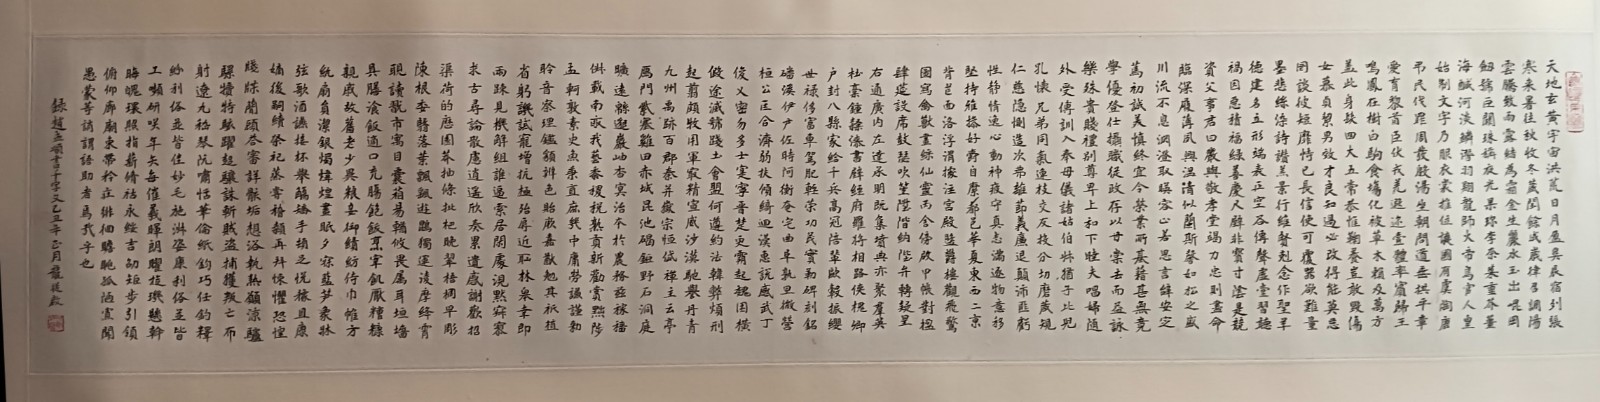 天地玄黃宇宙洪荒日月盈昃辰宿列張
寒來暑往秋收冬藏閏餘成歲律呂調陽
雲騰致雨露結為霜金生麗水玉出崑岡
劍號巨闕珠稱夜光果珍李柰菜重芥薑
海鹹河淡鱗潛羽翔龍師火帝鳥官人皇
始制文字乃服衣裳推位讓國有虞陶唐
弔民伐罪周發殷湯坐朝問道垂拱平章
愛育黎首臣伏戎羌遐邇壹體率賓歸王
鳴鳳在樹白駒食場化被草木賴及萬方
蓋此身髮四大五常恭惟鞠養豈敢毀傷
女慕貞絜男效才良知過必改得能莫忘
罔談彼短靡恃己長信使可覆器欲難量
墨悲絲染詩讚羔羊景行維賢剋念作聖
德建名立形端表正空谷傳聲虛堂習聽
禍因惡積福緣善慶尺璧非寶寸陰是競
資父事君曰嚴與敬孝當竭力忠則盡命
臨深履薄夙興溫凊似蘭斯馨如松之盛
川流不息淵澄取暎容止若思言辭安定
篤初誠美慎終宜令榮業所基籍甚無竟
學優登仕攝職從政存以甘棠去而益詠
樂殊貴賤禮別尊卑上和下睦夫唱婦隨
外受傅訓入奉母儀諸姑伯叔猶子比兒
孔懷兄弟同氣連枝交友投分切磨箴規
仁慈隱惻造次弗離節義廉退顛沛匪虧
性靜情逸心動神疲守真志滿逐物意移
堅持雅操好爵自縻都邑華夏東西二京
背芒面洛浮渭據涇宮殿盤鬱樓觀飛驚
圖寫禽獸畫綵仙靈丙舍傍啟甲帳對楹
肆筵設席鼓瑟吹笙陞階納陛弁轉疑星
右通廣內左達承明既集墳典亦聚群英
杜稾鍾隸漆書壁經府羅將相路俠槐卿
戶封八縣家給千兵高冠陪輦驅轂振纓
世祿侈富車駕肥輕策功茂實勒碑刻銘
磻溪伊尹佐時阿衡奄宅曲阜孰旦微營
桓公匡合濟弱扶傾綺迴漢惠說感武丁
俊乂密勿多士寔寧晉楚更霸趙魏困橫
假途滅虢踐土會盟何遵約法韓弊煩刑
起翦頗牧用軍最精宣威沙漠馳譽丹青
九州禹跡百郡秦并嶽宗恒岱禪主云亭
鴈門紫塞雞田赤城昆池碣石鉅野洞庭
曠遠綿邈巖岫杳冥治本於農務茲稼穡
俶載南畝我藝黍稷稅熟貢新勸賞黜陟
孟軻敦素史魚秉直庶幾中庸勞謙謹勑
聆音察理鑑貌辨色貽厥嘉猷勉其祗植
省躬譏誡寵增抗極殆辱近恥林皋幸即
兩疎見機解組誰逼索居閑處沉默寂寥
求古尋論散慮逍遙欣奏累遣慼謝歡招
渠荷的歷園莽抽條枇杷晚翠梧桐早彫
陳根委翳落葉飄颻遊鵾獨運凌摩絳霄
耽讀翫市寓目囊箱易輶攸畏屬耳垣墻
具膳飡飯適口充腸飽飫烹宰飢厭糟糠
親戚故舊老少異糧妾御績紡侍巾帷房
紈扇圓潔銀燭煒煌晝眠夕寐藍笋象牀
弦歌酒讌接杯舉觴矯手頓足悅豫且康
嫡後嗣續祭祀蒸嘗稽顙再拜悚懼恐惶
牋牒簡要顧答審詳骸垢想浴執熱願涼驢
騾犢特駭躍超驤誅斬賊盜捕獲叛亡布
射遼丸嵇琴阮嘯恬筆倫紙鈞巧任釣釋
紛利俗並皆佳妙毛施淑姿
工嚬妍笑年矢每催羲暉朗曜璇璣懸斡
晦魄環照指薪修祜永綏吉劭矩步引領
俯仰廊廟束帶矜莊徘徊瞻眺孤陋寡聞
愚蒙等誚謂語助者焉哉乎也
錄趙孟頫書千字文乙丑年正月